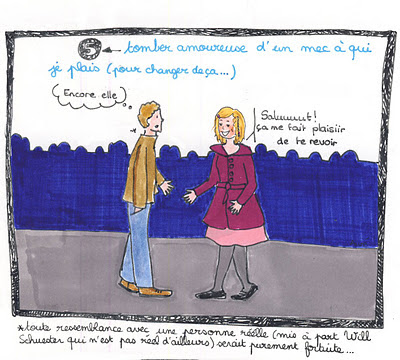 5 ← tomber amoureuse d'un mec à qui
je plais (pour changer de ça...)
Encore elle
Saluuuut!
ça me fait plaisiir
de te revoir
*toute ressemblance avec une personne réelle (mis à part Will
Schuester qui n'est pas réel d'ailleurs) serait purement fortuite...